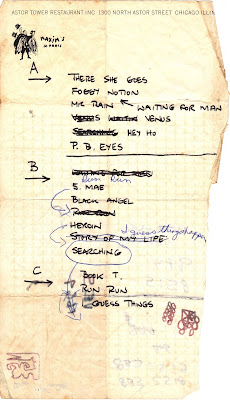 ASTOR TOWER RESTAURANT INC. 1300 NORTH ASTOR STREET CHICAGO ILLIN
MAXIM'S
DE PARIS
A
THERE SHE GOES
FOGGY NOTION
MR. RAIN WAITING FOR MAN
VENUS WAITIN VENUS
SEARCHING HEY HO
P. B. EYES
B
WAITING FOR MAN
Run Run
S. MAE
BLACK ANGEL
RUN RUN
HEROIN
STORY OF MY LIFE I guess things happen
SEARCHING
C
BOOK T.
RUN RUN
GUESS THINGS